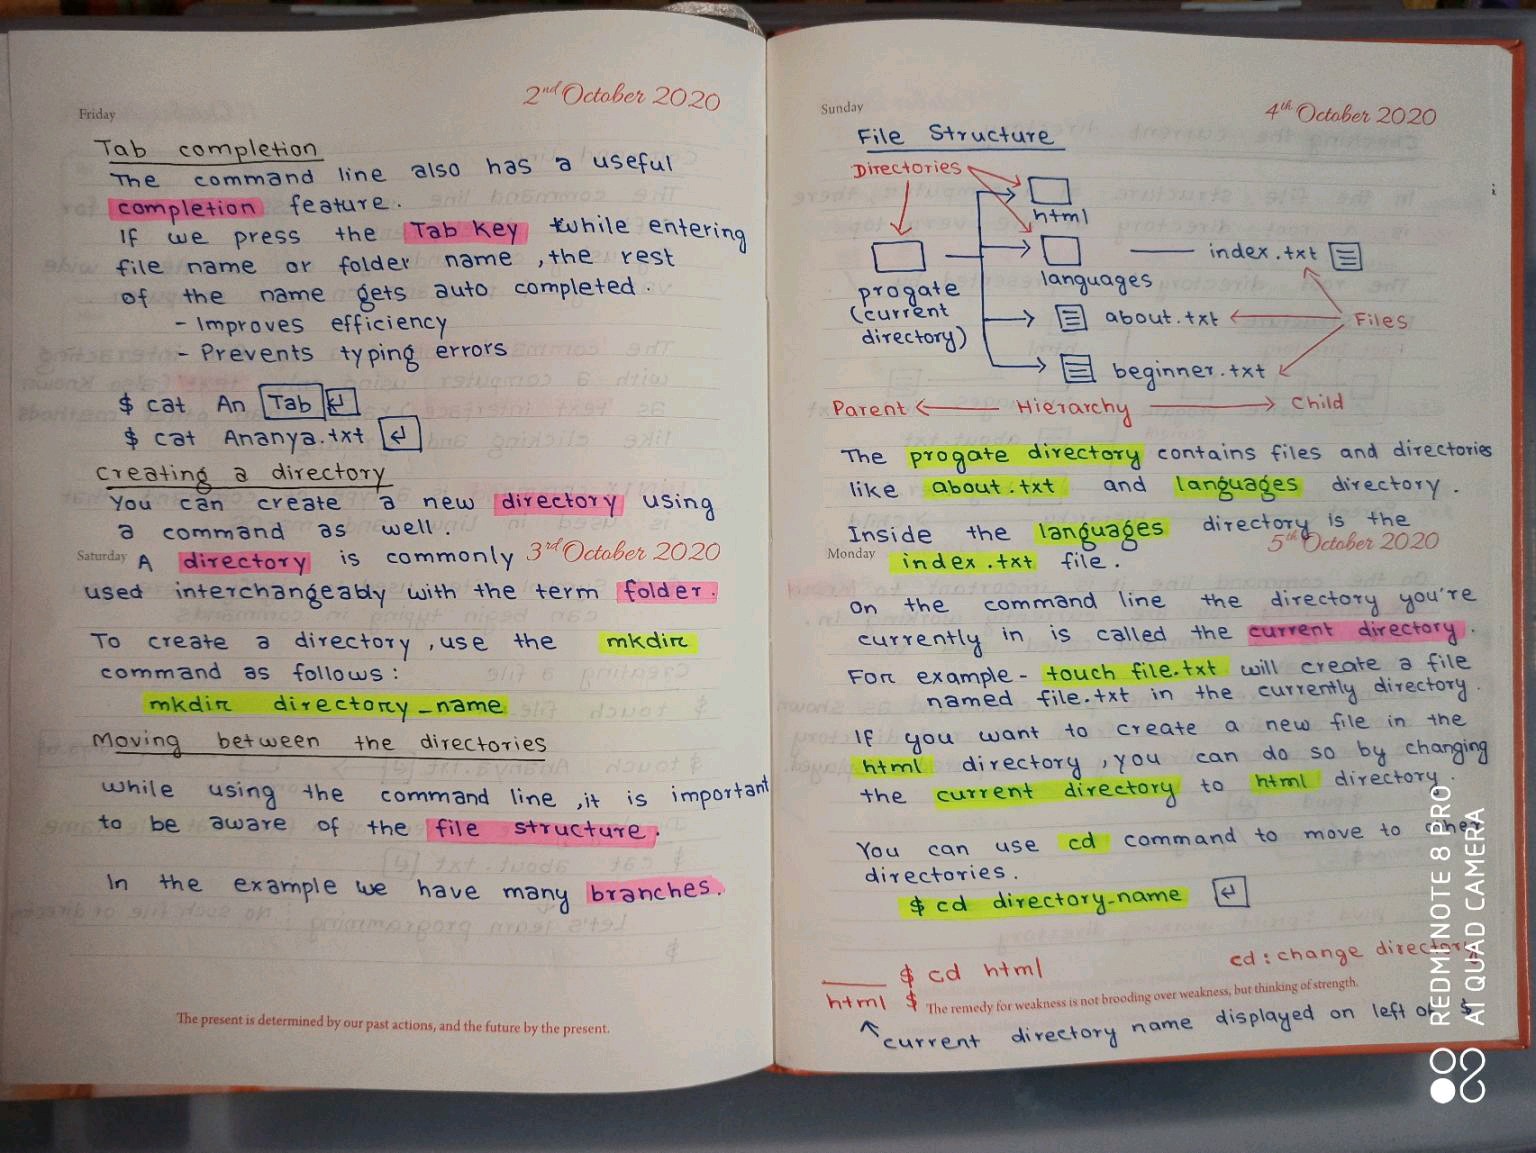 Friday
2nd October 2020
Tab completion
The command line also has a useful
completion feature.
If we press the Tab Key while entering
file name or folder name, the rest
of the name gets auto completed.
- Improves efficiency
- Prevents typing errors
$ cat An Tab ↵
$ cat Ananya.txt ↵
Creating a directory
You can create a new directory using
a command as well.
Saturday
3rd October 2020
A directory is commonly
used interchangeably with the term folder.
To create a directory, use the mkdir
command as follows:
mkdir directory_name
Moving between the directories
While using the command line, it is important
to be aware of the file structure.
In the example we have many branches.
The present is determined by our past actions, and the future by the present.
Sunday
4th October 2020
File Structure
Directories
html
index.txt
progate
(current
directory)
languages
about.txt
Files
beginner.txt
Parent ← Hierarchy → Child
The progate directory contains files and directories
like about.txt and languages directory.
Inside the languages directory is the
Monday
5th October 2020
index.txt file.
On the command line the directory you're
currently in is called the current directory.
For example - touch file.txt will create a file
named file.txt in the currently directory.
If you want to create a new file in the
html directory, you can do so by changing
the current directory to html directory.
You can use cd command to move to other
directories.
$ cd directory-name ↵
cd : change directory
$ cd html
html $
The remedy for weakness is not brooding over weakness, but thinking of strength.
current directory name displayed on left of $
REDMI NOTE 8 PRO
AI QUAD CAMERA